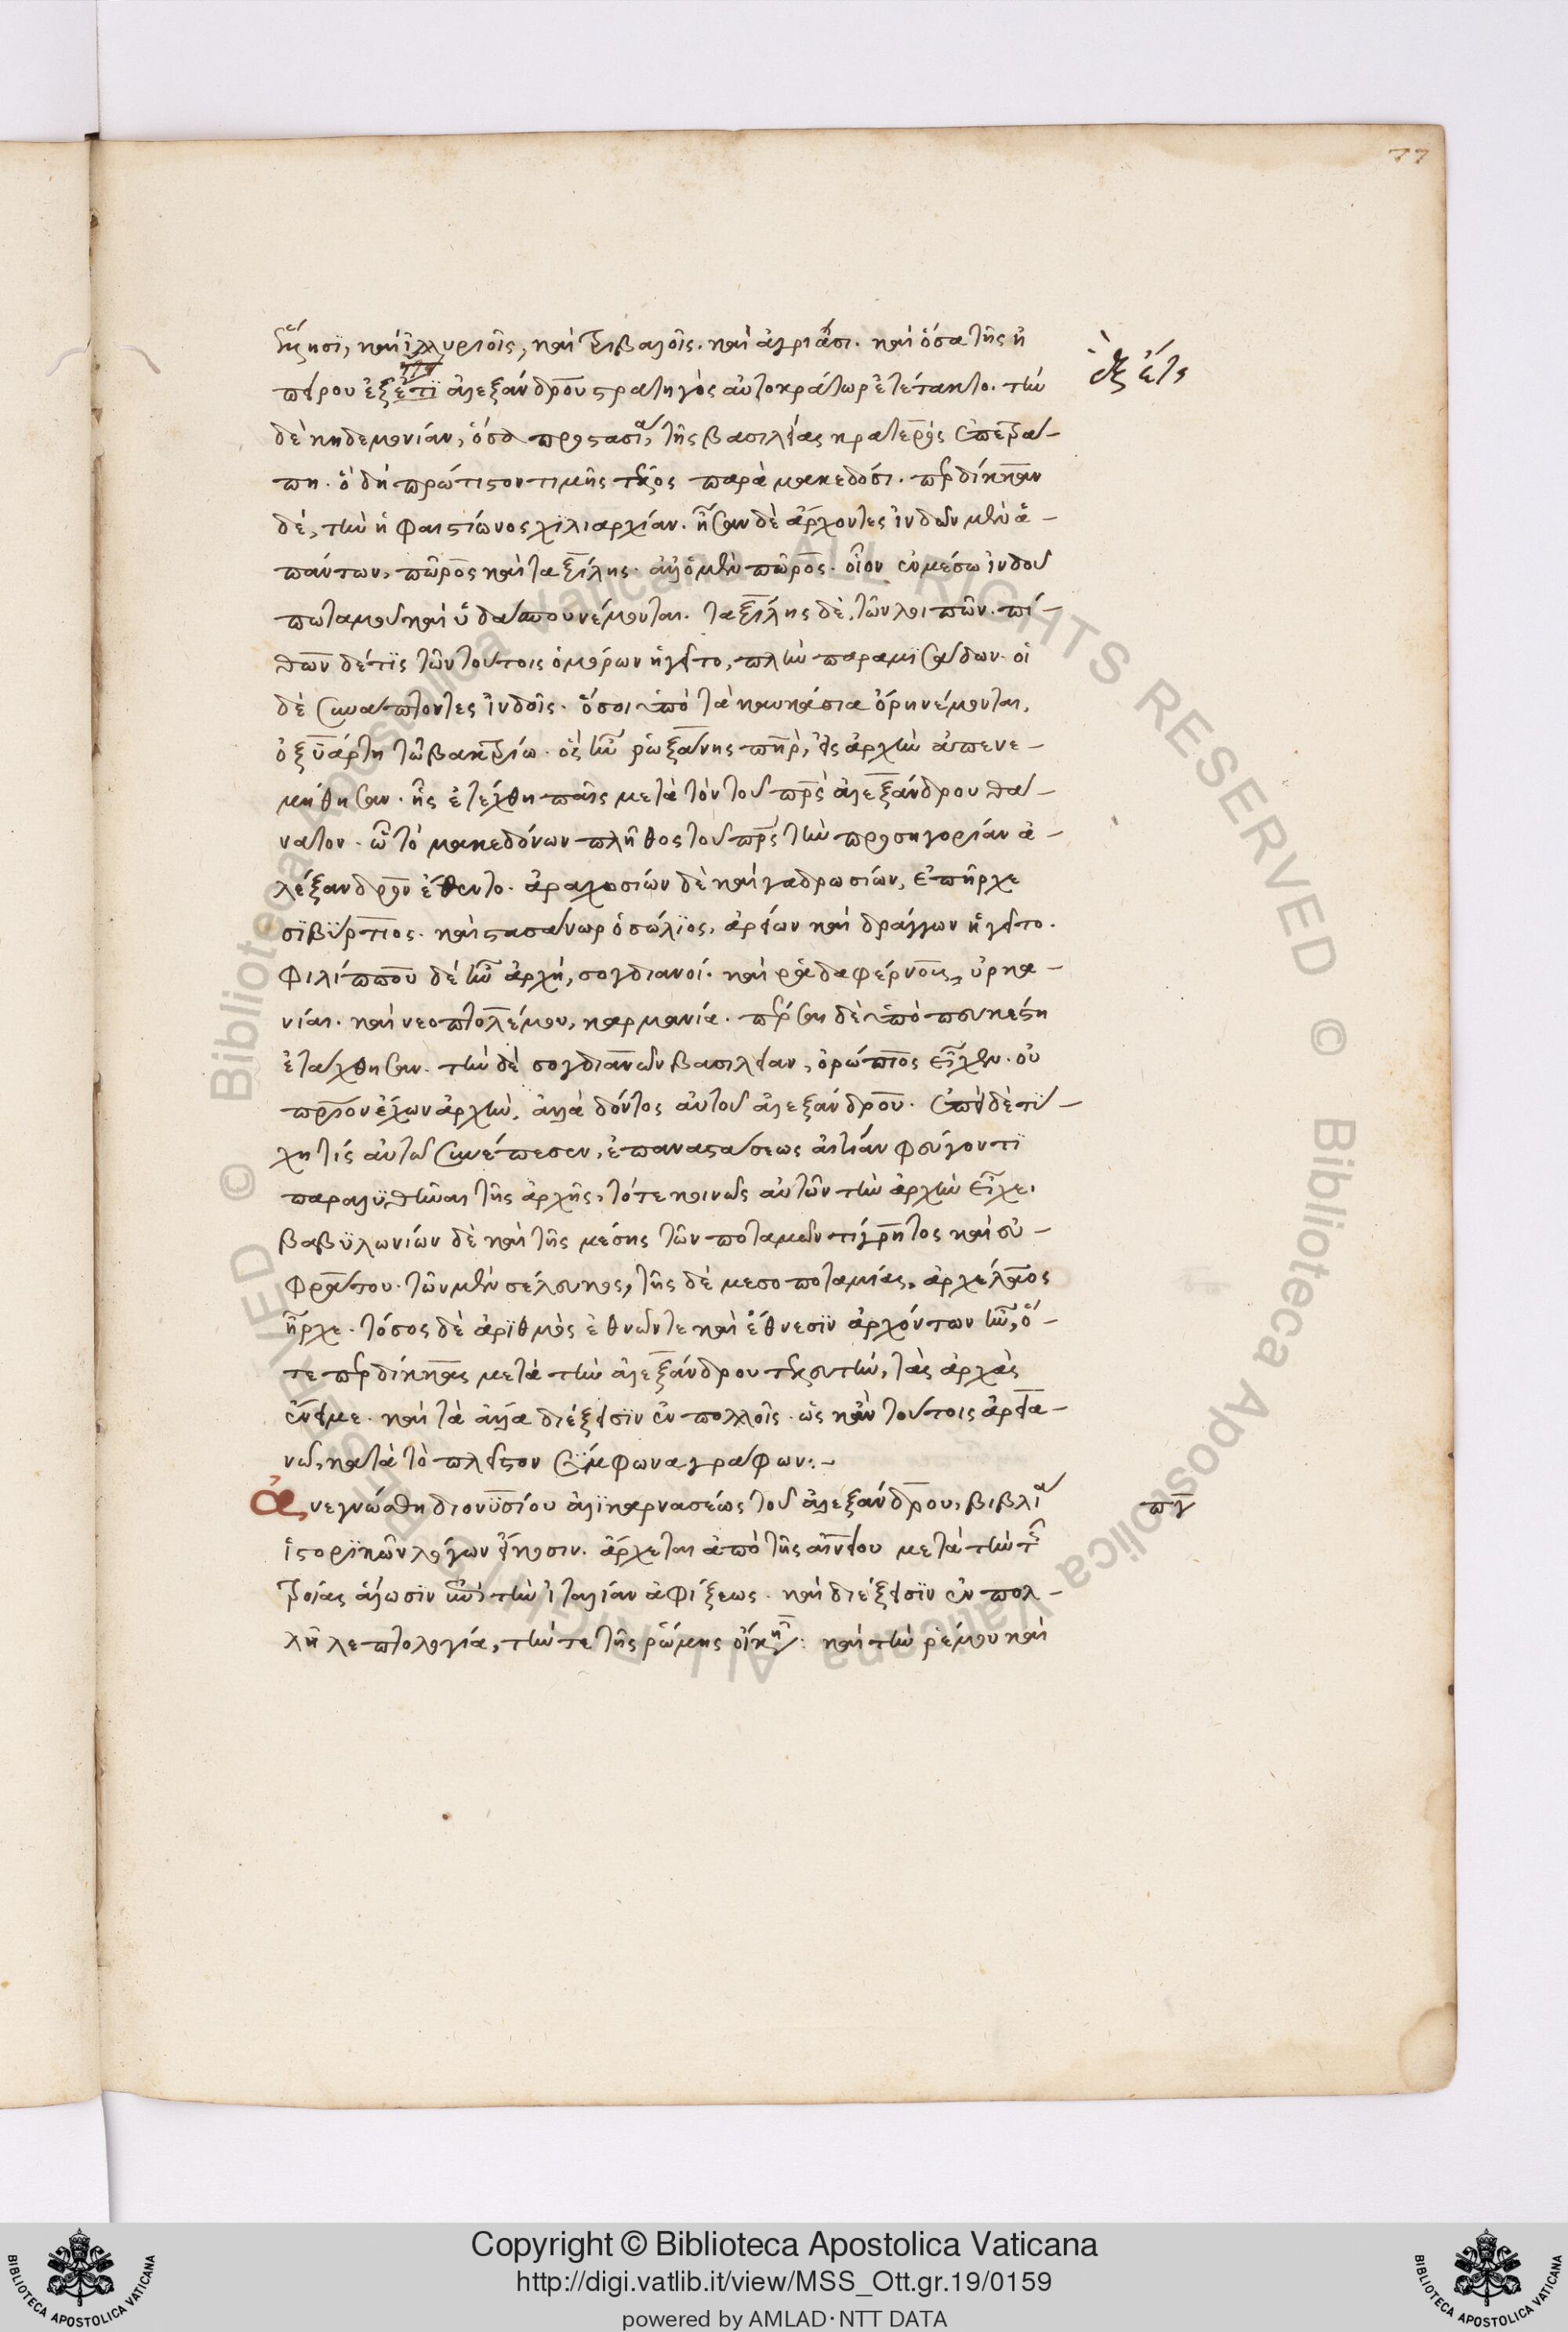 77
καὶ ἰλλυριοῖς, καὶ τριβαλοῖς. καὶ ἀγριᾶσι. καὶ ὅσα τῆς ἠ
πείρου ἐξέτι ἀλεξάνδρου στρατηγὸς αὐτοκράτωρ ἐτέτακτο. τὴν
ἐξ ἔτι
δὲ κηδεμονίαν, ὅσα προστασία, τῆς βασιλείας κρατερὸς ἐπετρά-
πη. ὃ δὴ πρώτιστον τιμῆς τέλος παρὰ μακεδόσι. περδίκκαν
δὲ, τὴν ἡφαιστίωνος χιλιαρχίαν. ἦσαν δὲ ἄρχοντες ἰνδῶν μὲν ἁ-
πάντων, πῶρος καὶ ταξίλης. ἀλλ' ὁ μὲν πῶρος. οἷον ἐν μέσω ἰνδοῦ
ποταμοῦ καὶ ὑδάσπου νέμονται. ταξίλης δὲ, τῶν λοιπῶν. πί-
θων δέ τις τῶν τούτοις ὁμόρων ἡγεῖτο, πλὴν παραμισάδων. οἱ
δὲ συνάπτοντες ἰνδοῖς. ὅσοι ὑπὸ τὰ καυκάσια ὄρη νέμονται,
ὀξυάρτη τῶ βακτρίω. ὃς ἦν ῥωξάνης πατὴρ, εἰς ἀρχὴν ἀπενε-
μήθησαν. ἧς ἐτέχθη παῖς μετὰ τὸν τοῦ πατρὸς ἀλεξάνδρου θά-
νατον. ὧ τὸ μακεδόνων πλῆθος τοῦ πατρὸς τὴν προσηγορίαν ἀ-
λέξανδρον ἔθεντο. ἀραχωσιών δὲ καὶ γαδρωσιών, ἐπῆρχε
σιβύρτιος. καὶ στασάνωρ ὁ σώλιος, ἀρείων καὶ δράγγων ἡγεῖτο.
φιλίππου δὲ ἦν ἀρχή, σογδιανοί. καὶ ῥαδαφέρνους, ὑρκα-
νίαι. καὶ νεοπτολέμου, καρμανία. πέρσαι δὲ ὑπὸ πευκέστη
ἐτάχθησαν. τὴν δὲ σογδιανῶν βασιλείαν, ὀρώπιος εἶχεν. οὐ
πάτριον ἔχων ἀρχὴν, ἀλλὰ δόντος αὐτοῦ ἀλεξάνδρου. ἐπεὶ δὲ τύ-
χη τὶς αὐτῶ συνέπεσεν, ἐπαναστάσεως αἰτίαν φεύγοντι
παραλυθῆναι τῆς ἀρχῆς, τότε κοινῶς αὐτῶν τὴν ἀρχὴν εἶχε.
βαβυλωνίων δὲ καὶ τῆς μέσης τῶν ποταμῶν τίγρητος καὶ εὐ-
φράτου. τῶν μὲν σέλευκος, τῆς δὲ μεσοποταμίας, ἀρχέλαος
ἦρχε. τόσος δὲ ἀριθμὸς ἐθνῶν τε καὶ ἔθνεσιν ἀρχόντων ἦν, ὅ-
τε περδίκκας μετὰ τὴν ἀλεξάνδρου τελευτὴν, τὰς ἀρχὰς
ἔνειμε. καὶ τὰ ἄλλα διέξεισιν ἐν πολλοῖς. ὡς κἀν τούτοις ἀρεια-
νῶ, κατὰ τὸ πλεῖστον σύμφωνα γράφων:-
Ἀνεγνώσθη διονυσίου ἁλικαρνασέως τοῦ ἀλεξάνδρου, βιβλία
πγ
ἱστορικῶν λόγων εἴκοσιν. ἄρχεται ἀπὸ τῆς αἰνείου μετὰ τὴν τῆς
τροίας ἅλωσιν ἐπὶ τὴν ἰταλίαν ἀφίξεως. καὶ διέξεισιν ἐν πολ-
λῆ λεπτολογία, τήν τε τῆς ῥώμης οἴκησιν: καὶ τὴν ῥέμου καὶ
Copyright © Biblioteca Apostolica Vaticana
http://digi.vatlib.it/view/MSS_Ott.gr.19/0159
powered by AMLAD·NTT DATA
BIBLIOTECA APOSTOLICA VATICANA
BIBLIOTECA APOSTOLICA VATICANA
© Biblioteca Apostolica Vaticana ALL RIGHTS RESERVED © Biblioteca Apostolica Vaticana ALL RIGHTS RESERVED